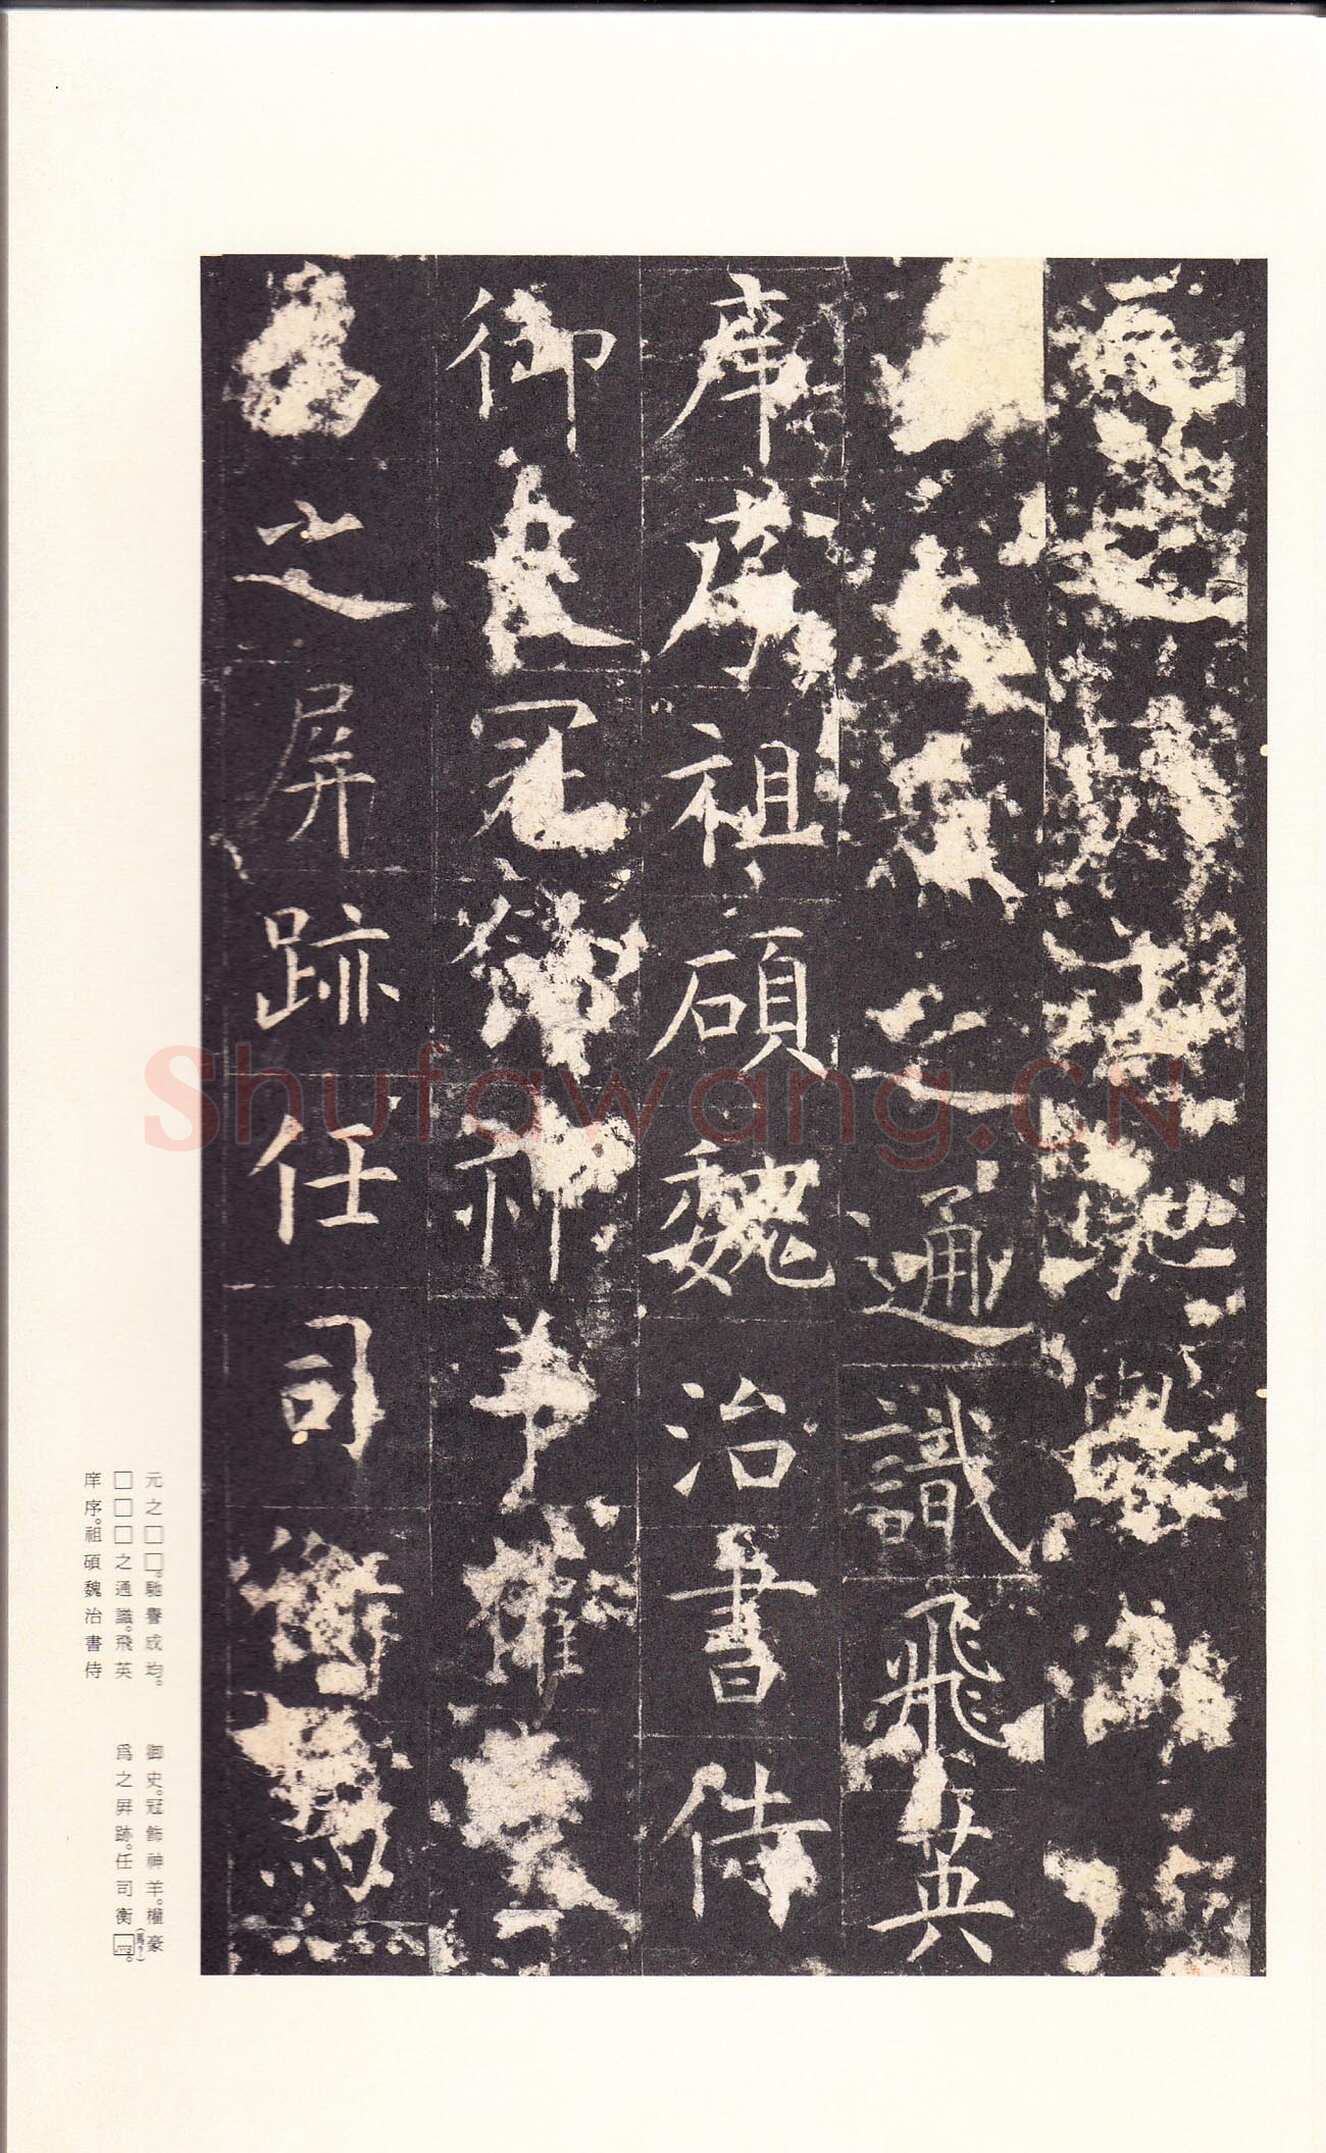 元之馳譽
之通識飛英
庠序祖碩魏治書侍
御史冠飾神羊權豪
為之屏跡任司衡
元之□□。馳譽成均。
□□□之通識。飛英
庠序。祖碩魏治書侍
御史。冠飾神羊。權豪
爲之屏跡。任司衡□。
Shufawang.CN